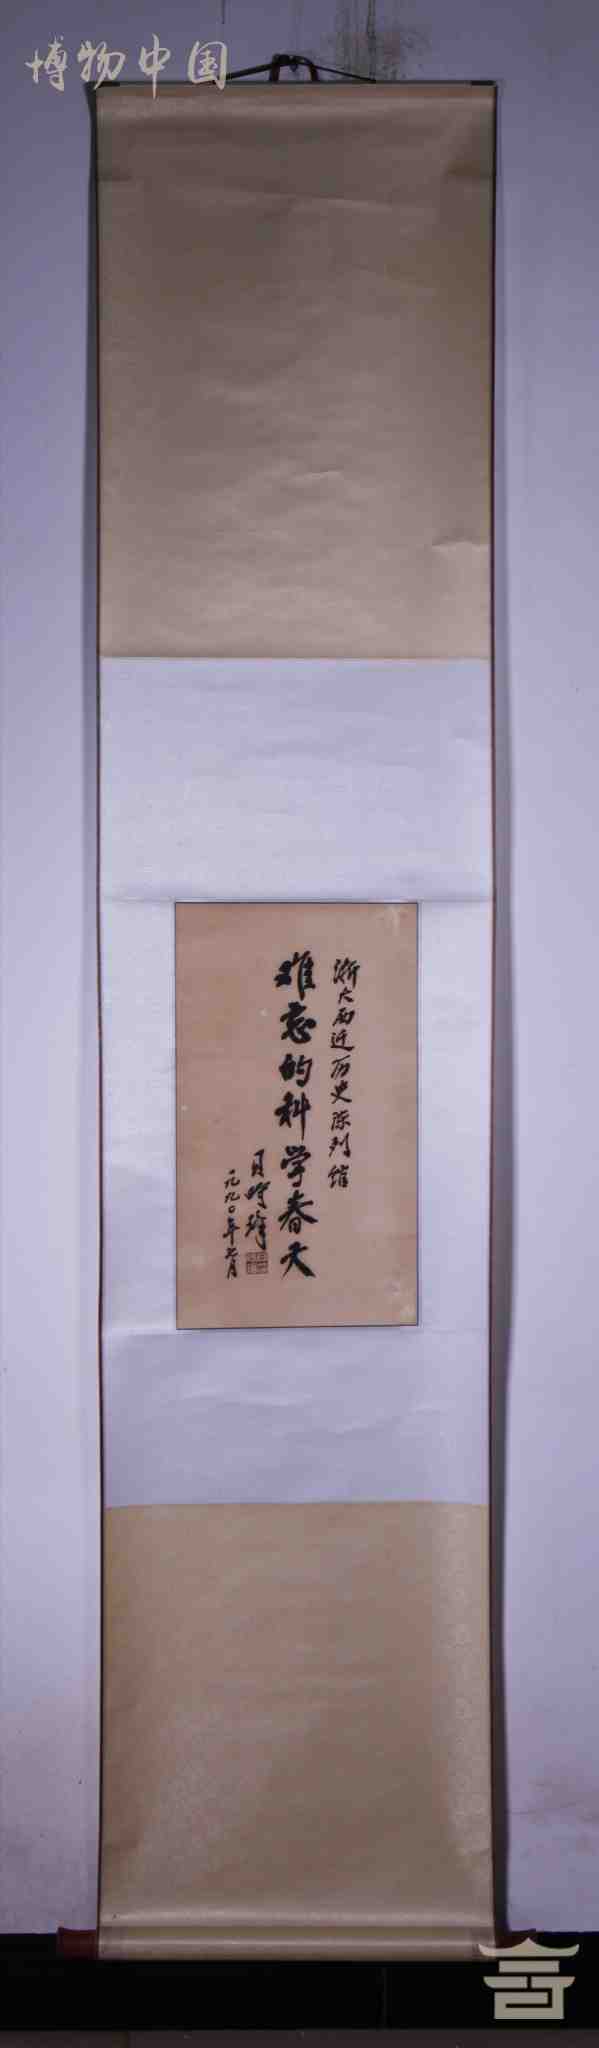 博物中国
浙大西迁历史陈列馆
难忘的科学春天
贝时璋
一九九〇年七月